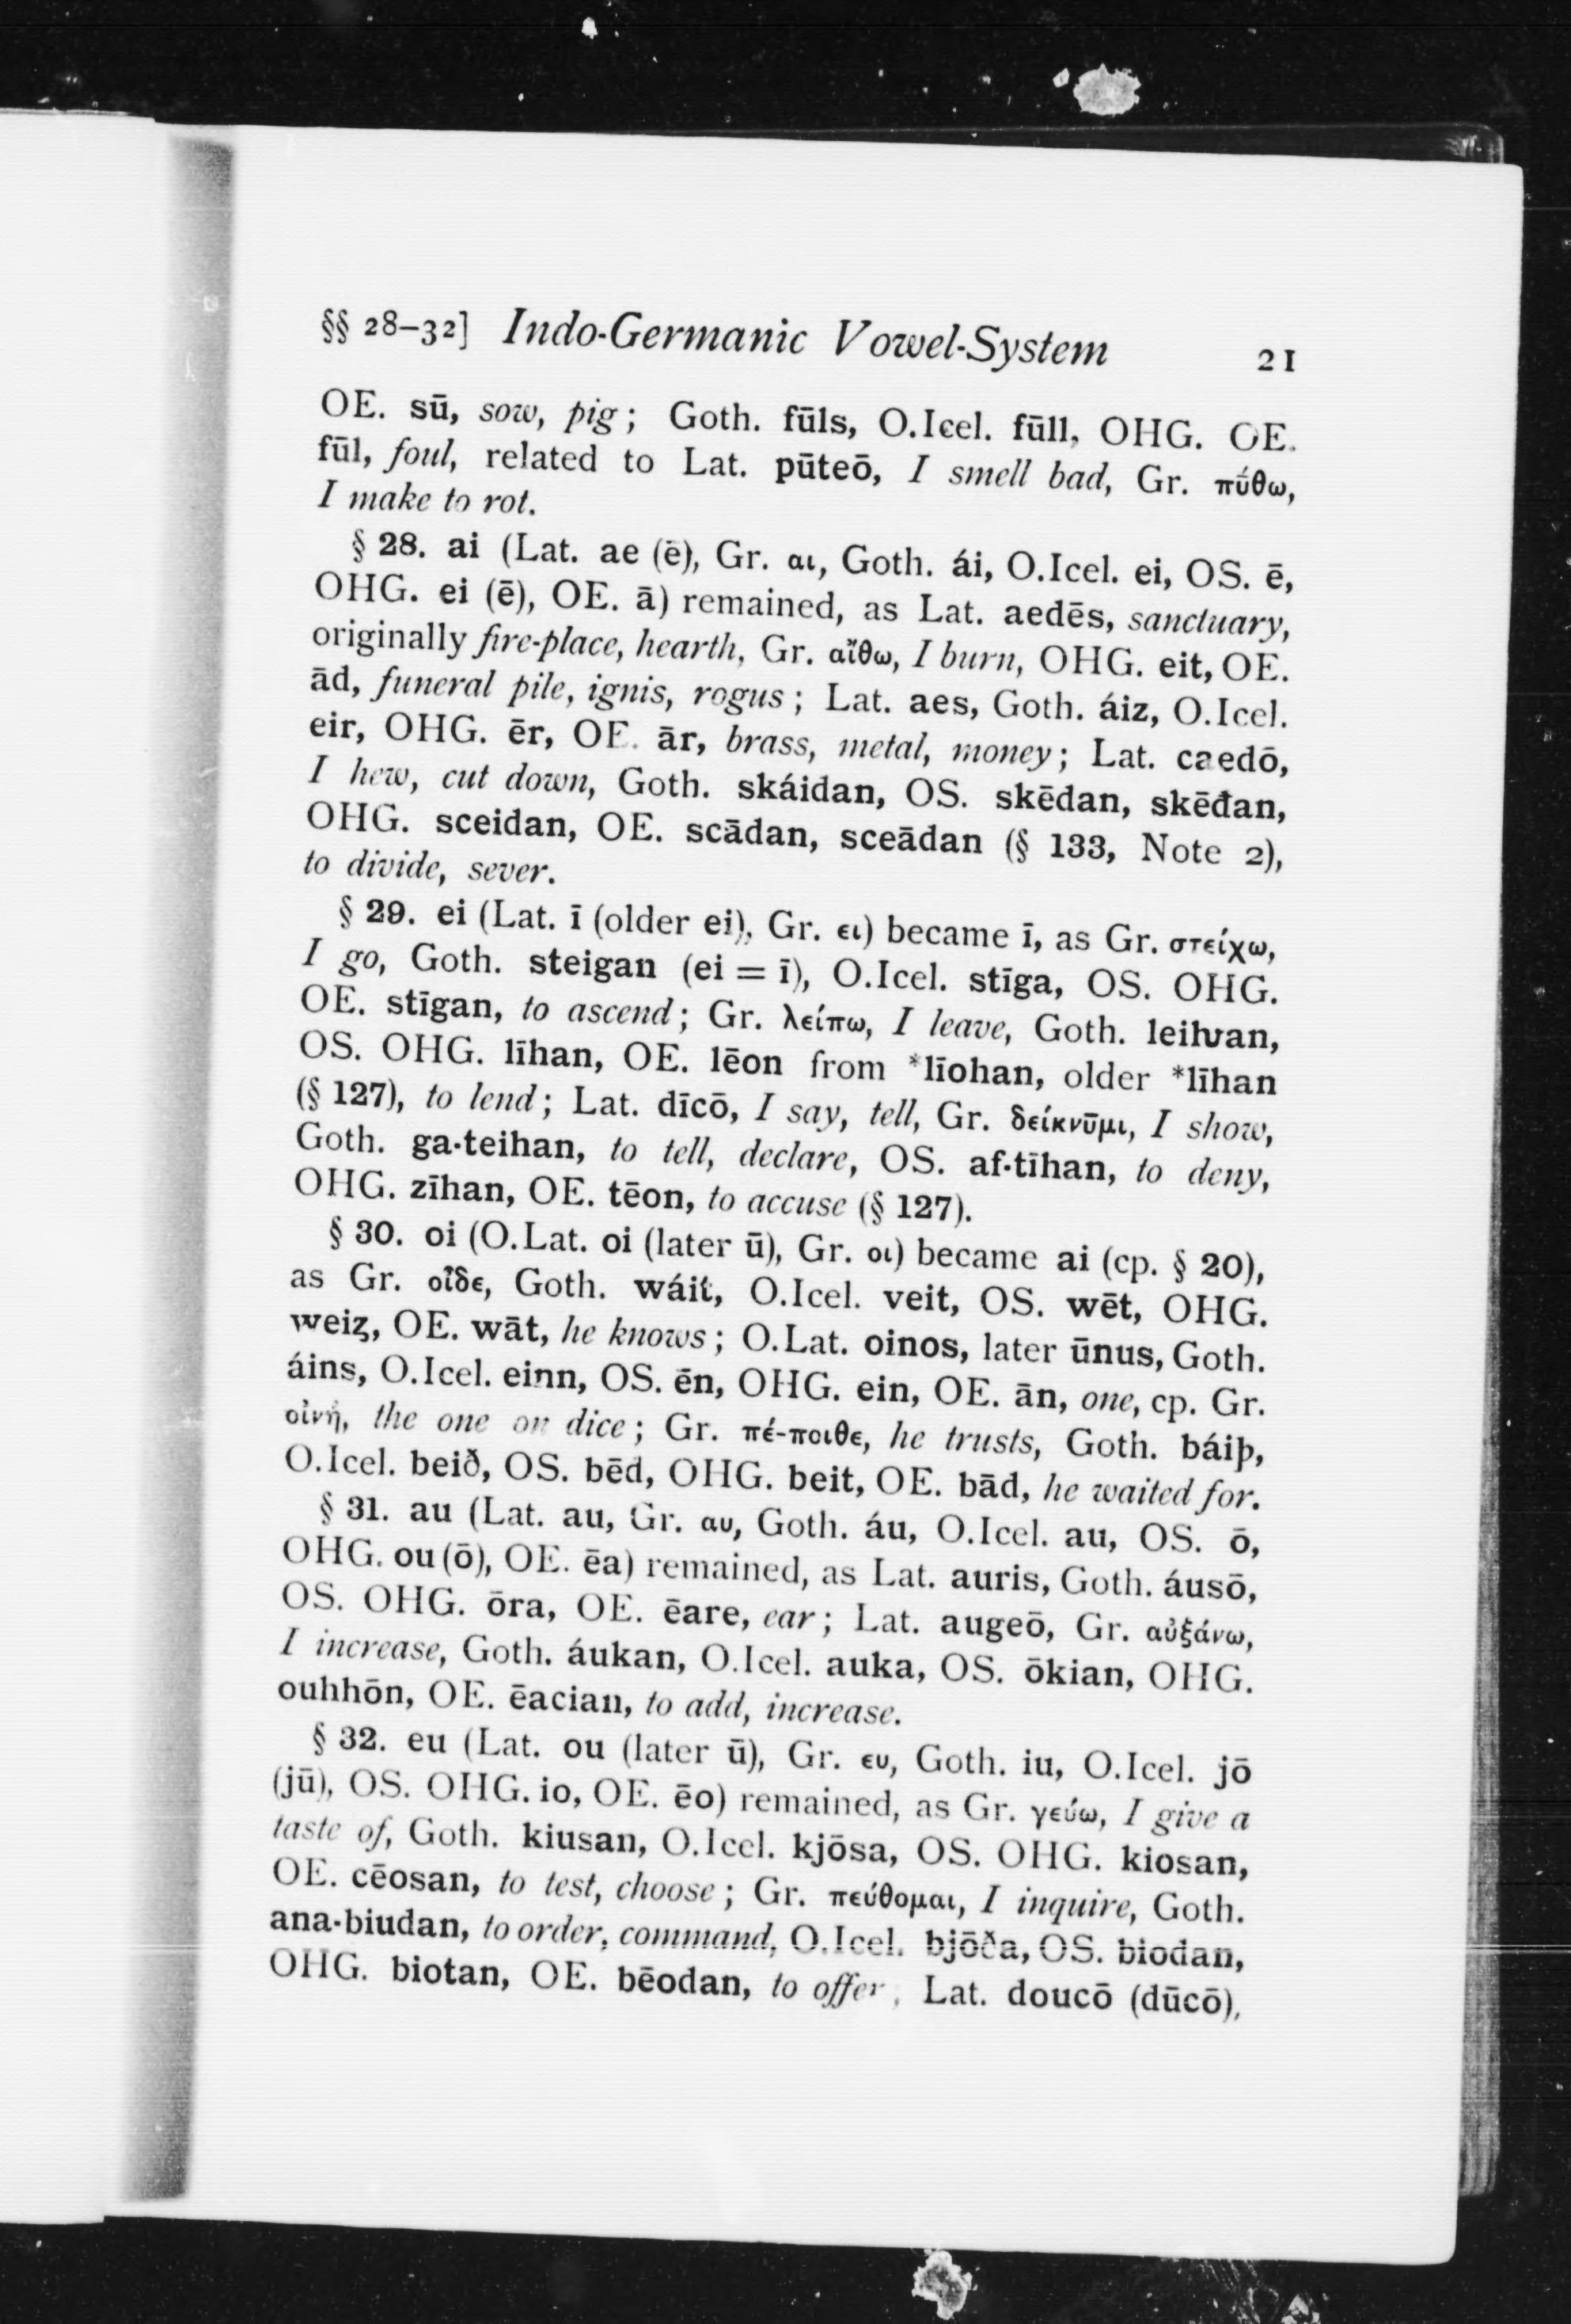 §§ 28–32] Indo-Germanic Vowel-System 21
OE. sū, sow, pig; Goth. fūls, O.Icel. fūll, OHG. OE.
fūl, foul, related to Lat. pūteō, I smell bad, Gr. πῡ́θω,
I make to rot.
§ 28. ai (Lat. ae (ē), Gr. αι, Goth. ái, O.Icel. ei, OS. ē,
OHG. ei (ē), OE. ā) remained, as Lat. aedēs, sanctuary,
originally fire-place, hearth, Gr. αἴθω, I burn, OHG. eit, OE.
ād, funeral pile, ignis, rogus; Lat. aes, Goth. áiz, O.Icel.
eir, OHG. ēr, OE. ār, brass, metal, money; Lat. caedō,
I hew, cut down, Goth. skáidan, OS. skēdan, skēđan,
OHG. sceidan, OE. scādan, sceādan (§ 133, Note 2),
to divide, sever.
§ 29. ei (Lat. ī (older ei), Gr. ει) became ī, as Gr. στείχω,
I go, Goth. steigan (ei = ī), O.Icel. stīga, OS. OHG.
OE. stīgan, to ascend; Gr. λείπω, I leave, Goth. leiƕan,
OS. OHG. līhan, OE. lēon from *līohan, older *līhan
(§ 127), to lend; Lat. dīcō, I say, tell, Gr. δείκνῡμι, I show,
Goth. ga·teihan, to tell, declare, OS. af·tīhan, to deny,
OHG. zīhan, OE. tēon, to accuse (§ 127).
§ 30. oi (O.Lat. oi (later ū), Gr. οι) became ai (cp. § 20),
as Gr. οἶδε, Goth. wáit, O.Icel. veit, OS. wēt, OHG.
weiȥ, OE. wāt, he knows; O.Lat. oinos, later ūnus, Goth.
áins, O.Icel. einn, OS. ēn, OHG. ein, OE. ān, one, cp. Gr.
οἰνή, the one on dice; Gr. πέ-ποιθε, he trusts, Goth. báiþ,
O.Icel. beið, OS. bēd, OHG. beit, OE. bād, he waited for.
§ 31. au (Lat. au, Gr. αυ, Goth. áu, O.Icel. au, OS. ō,
OHG. ou (ō), OE. ēa) remained, as Lat. auris, Goth. áusō,
OS. OHG. ōra, OE. ēare, ear; Lat. augeō, Gr. αὐξάνω,
I increase, Goth. áukan, O.Icel. auka, OS. ōkian, OHG.
ouhhōn, OE. ēacian, to add, increase.
§ 32. eu (Lat. ou (later ū), Gr. ευ, Goth. iu, O.Icel. jō
(jū), OS. OHG. io, OE. ēo) remained, as Gr. γεύω, I give a
taste of, Goth. kiusan, O.Icel. kjōsa, OS. OHG. kiosan,
OE. cēosan, to test, choose; Gr. πεύθομαι, I inquire, Goth.
ana·biudan, to order, command, O.Icel. bjōða, OS. biodan,
OHG. biotan, OE. bēodan, to offer; Lat. doucō (dūcō),